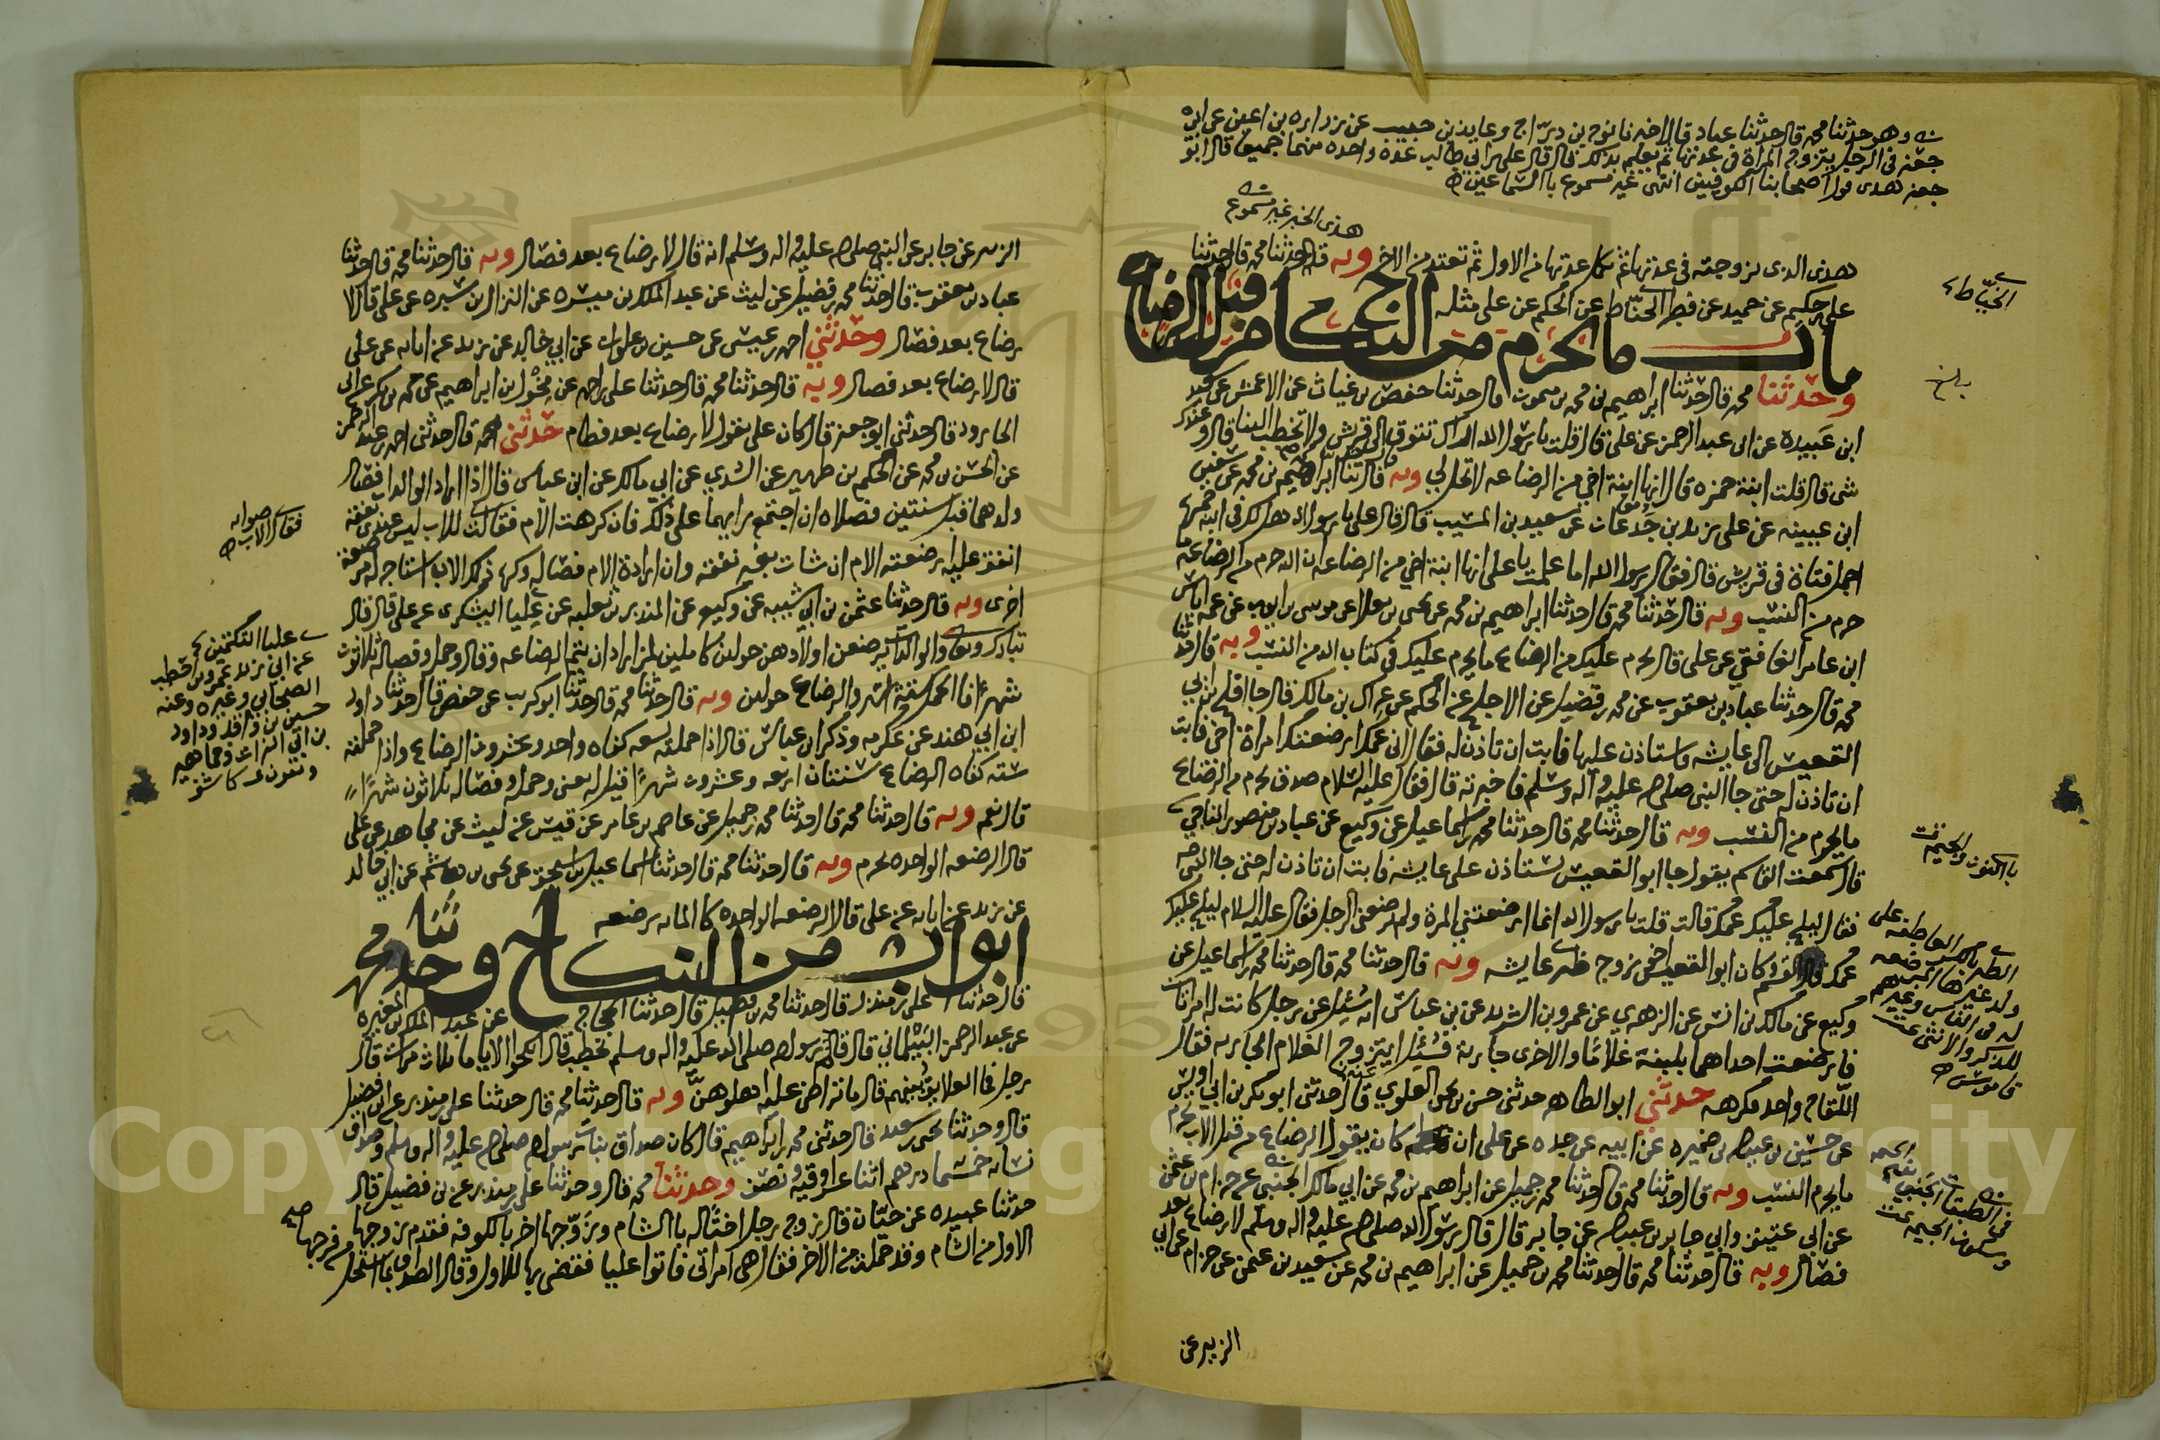 وهو حدثنا محمد قال حدثنا عباد قال اخبرنا نوح بن دراج وعايذ بن حبيب عن زراره بن اعين عن ابي
جعفر في الرجل يتزوج المراة في عدتها ثم يعلم بذلك قال قال علي بن ابي طالب عدة واحده منهما جميعا قال ابو
جعفر هذى قول اصحابنا الكوفيين انتهى غير مسموع بالسماعين
هذى الخبر غير مسموع
هذى الذى تزوجته في عدتها ثم تكمل عدتها من الاول ثم تعتد من الاخر وبه قال حدثنا محمد قال حدثنا
علي بن حكيم عن حميد عن فطر الحناط عن الحكم عن علي مثله
باب ما يحرم من النكاح من قبل الرضاع
وحدثنا محمد قال حدثنا ابراهيم بن محمد بن ميمون قال حدثنا حفص بن غياث عن الاعمش عن سعد
ابن عبيدة عن ابي عبد الرحمن عن علي قال قلت يا رسول الله اراك تتوق الى قريش ولا تخطب الينا قال وعندك
شي قال قلت ابنة حمزه قال انها ابنة اخي من الرضاعه لا تحل لي وبه قال حدثنا ابراهيم بن محمد عن سفين
ابن عيينه عن علي بن زيد بن جدعان عن سعيد بن المسيب قال قال علي يا رسول الله هل لك في ابنة عمك حمزه
اجمل فتاة في قريش قال فقال رسول الله اما علمت يا علي انها ابنة اخي من الرضاعه ان الله حرم من الرضاعه ما
حرم من النسب وبه قال حدثنا محمد قال حدثنا ابراهيم بن محمد عن يحيى بن يعلا عن موسى بن ايوب عن عمه اياس
ابن عامر الغافقي عن علي قال يحرم عليك من الرضاع ما يحرم عليك في كتاب الله من النسب وبه قال حدثنا
محمد قال حدثنا عباد بن يعقوب عن محمد بن فضيل عن الاجلح عن الحكم عن عراك بن مالك قال جا افلح بن ابي
القعيس الى عايشه فاستاذن عليها فابت ان تاذن له فقال اني عمك ارضعتك امراة اخي فابت
ان تاذن له حتى جا النبي صلى الله عليه وآله وسلم فاخبرته قال فقال عليه السلام صدق يحرم من الرضاع
ما يحرم من النسب وبه قال حدثنا محمد قال حدثنا محمد بن اسماعيل عن وكيع عن عباد بن منصور الناجي
قال سمعت القاسم يقول جا ابو القعيس يستاذن على عايشه فابت ان تاذن له حتى جا النبي
فقال ليلج عليك عمك قالت قلت يا رسول الله انما ارضعتني المرة ولم يرضعني الرجل فقال عليه السلام ليلج عليك
عمك قال القسم وكان ابو القعيس اخي زوج ظير عايشه وبه قال حدثنا محمد قال حدثنا محمد بن اسماعيل عن
وكيع عن مالك بن انس عن الزهري عن عمرو بن الشريد عن بن عباس انه سئل عن رجل كانت له امراتان
فارضعت احداهما بلبنه غلاما والاخرى جارية فسئل ايتزوج الغلام الجاريه فقال
اللقاح واحد فكرهه حدثني ابو الطاهر حدثني حسن بن يحيى العلوي قال حدثني ابو بكر بن ابي اويس
عن حسين بن عبد الله بن ضميره عن ابيه عن جده عن علي ان كان يقول الرضاع من قبل الاب يحرم
ما يحرم النسب وبه قال حدثنا محمد قال حدثنا محمد بن جميل عن ابراهيم بن محمد عن ابي مالك الجنبي عن حزام بن عثمن
عن ابي عتيق وابي جابر بن عبد الله عن جابر قال قال رسول الله صلى الله عليه واله وسلم لا رضاع بعد
فصال وبه قال حدثنا محمد قال حدثنا محمد بن جميل عن ابراهيم بن محمد عن سعيد بن عثمن عن حزام عن ابي
الزبير عن
الخياط
الطير بالكسر العاطفه على
ولد غيرها المرضعه
له في الناس وغيرهم
للذكر والانثى
قاموس
الزبير عن جابر عن النبي صلى الله عليه واله وسلم انه قال لا رضاع بعد فصال وبه قال حدثنا محمد قال حدثنا
عباد بن يعقوب قال حدثنا محمد بن فضيل عن ليث عن عبد الملك بن ميسره عن النزال بن سبره عن علي قال لا
رضاع بعد فصال وحدثني احمد بن عيسى عن حسين بن علوان عن ابي خالد عن زيد عن ابايه عن علي
قال لا رضاع بعد فصال وبه قال حدثنا محمد قال حدثنا علي بن احمد عن مخول بن ابراهيم عن محمد بن بكر عن ابي
الجارود قال حدثني ابو جعفر قال كان علي يقول لا رضاع بعد فطام حدثني محمد قال حدثني احمد بن عبد الرحمن
عن الحسن بن محمد عن الحكم بن ظهير عن السدي عن ابي مالك عن ابن عباس قال اذا اراد الوالدا فصال
ولدهما قبل سنتين فصلاه ان اجتمع رايهما على ذلك فان كرهت الام فقالت للاب ليس عندي نفقة
انفق عليه ارضعته الام ان شات بغير نفقه وان ارادة الام فصاله وكره ذلك الاب استاجر له مرضعة
اخرى وبه قال حدثنا عثمن بن ابي شيبه عن وكيع عن المنذر بن ثعلبه عن عليا اليشكري عن علي قال قال
تبارك وتعالى والوالدات يرضعن اولادهن حولين كاملين لمن اراد ان يتم الرضاعه وقال وحمله وفصاله ثلاثون
شهرا فالحمل ستة اشهر والرضاع حولين وبه قال حدثنا محمد قال حدثنا ابو كريب عن حفص قال حدثنا داود
ابن ابي هند عن عكرمه وذكر ابن عباس قال اذا حملته تسعه كفاه واحد وعشرون من الرضاع واذا حملته
سته كفاه الرضاع سنتان اربعه وعشرون شهرا قيل له يعني وحمله وفصاله ثلاثون شهرا
قال نعم وبه قال حدثنا محمد قال حدثنا محمد بن جميل عن عاصم بن عامر عن قيس عن ليث عن مجاهد عن علي
قال الرضعه الواحده تحرم وبه قال حدثنا محمد قال حدثنا اسماعيل بن اسحق عن يحيى بن هاشم عن ابي خالد
عن زيد عن ابايه عن علي قال الرضعه الواحده كالمايه رضعه
ابواب من النكاح وحدثنا محمد
قال حدثنا علي بن منذر قال حدثنا محمد بن فضيل قال حدثنا الحجاج عن عبد الملك بن المغيره
عن عبد الرحمن البيلماني قال قال رسول الله صلى الله عليه واله وسلم نخطب فقال انكحوا الايامى ثلاث مرات قال
رجل فما العلايق بينهم قال ما تراضى عليه اهلوهن وبه قال حدثنا محمد قال حدثنا علي بن منذر عن ابن فضيل
قال وحدثنا يحيى بن سعيد قال حدثني محمد بن ابراهيم قال كان صداق بنات رسول الله صلى الله عليه واله وسلم وصداق
نسايه خمسمايه درهم اثنا عشر اوقيه ونصف وحدثنا محمد قال وحدثنا علي بن منذر عن بن فضيل قال
حدثنا عبيده عن حيان قال زوج رجل اختا له بالشام وزوجها اخر بالكوفه فقدم زوجها
الاول من الشام وقد حملت من الاخر فقال هي امراتي فاتوا عليا فقضى بها للاول وقال الصداق بما استحل من فرجها
فقال الاب صوابه
Copyright © King Saud University